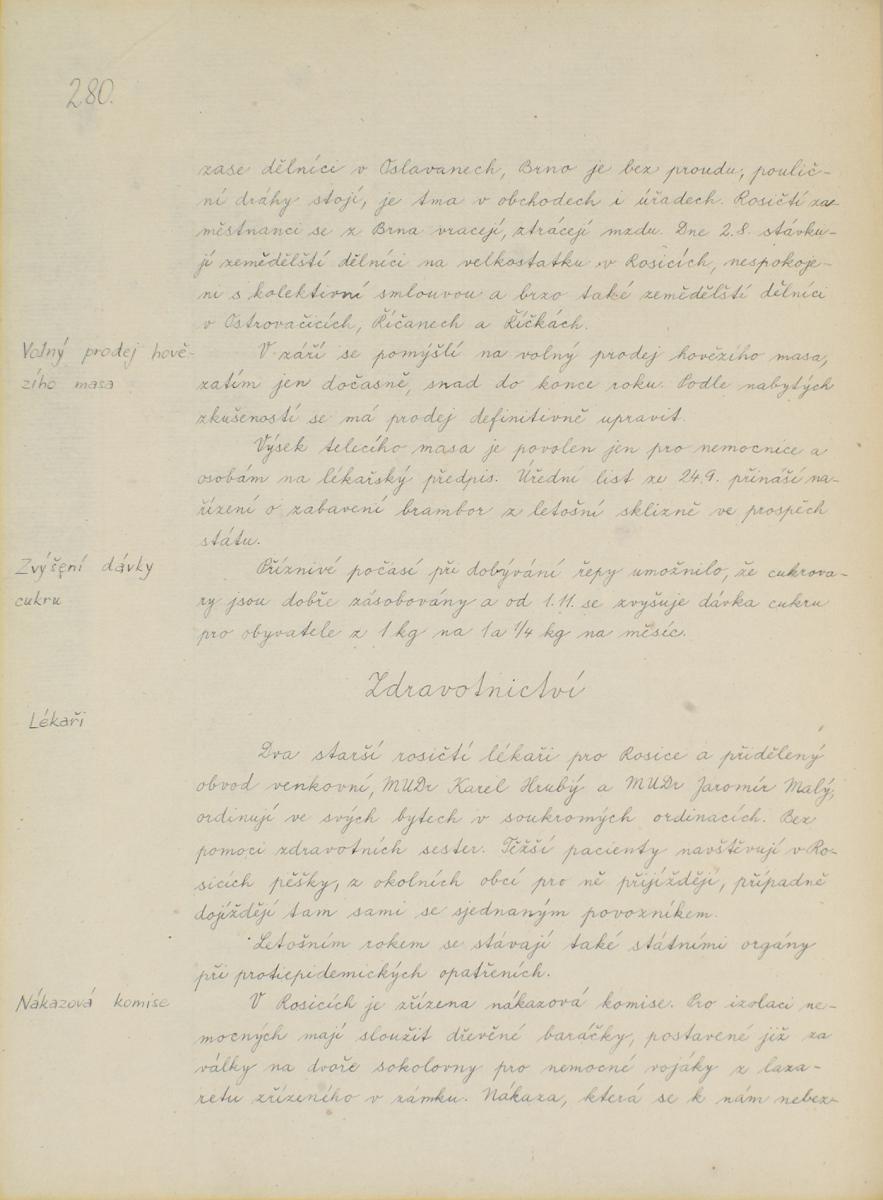 280.
zase dělníci v Oslavanech, Brno je bez proudu, poulič-
ní dráhy stojí, je tma v obchodech i úřadech. Rosičtí za-
městnanci se z Brna vracejí, ztrácejí mzdu. Dne 2.8. stávku-
jí zemědělští dělníci na velkostatku v Rosicích, nespokoje-
ni s kolektivní smlouvou a brzo také zemědělští dělníci
v Ostrovačicích, Říčanech a Říčkách.
Volný prodej hově-
zího masa
V září se pomýšlí na volný prodej hovězího masa,
zatím jen dočasně, snad do konce roku. Podle nabytých
zkušeností se má prodej definitivně upravit.
Výsek telecího masa je povolen jen pro nemocnice a
osobám na lékařský předpis. Úřední list ze 24.9. přináší na-
řízení o zabavení brambor z letošní sklizně ve prospěch
státu.
Zvýšení dávky
cukru
Příznivé počasí při dobývání řepy umožnilo, že cukrova-
ry jsou dobře zásobovány a od 1.11. se zvyšuje dávka cukru
pro obyvatele z 1 kg na 1 a 1/4 kg na měsíc.
Zdravotnictví
Lékaři
Dva starší rosičtí lékaři pro Rosice a přidělený
obvod venkovní, MUDr Karel Hrubý a MUDr Jaromír Malý,
ordinují ve svých bytech v soukromých ordinacích. Bez
pomoci zdravotních sester. Těžší pacienty navštěvují v Ro-
sicích pěšky, z okolních obcí pro ně přijíždějí, případně
dojíždějí tam sami se sjednaným povozníkem.
Letošním rokem se stávají také státními orgány
při protiepidemických opatřeních.
Nákazová komise
V Rosicích je zřízena nákazová komise. Pro izolaci ne-
mocných mají sloužit dřevěné baráčky, postavené již za
války na dvoře sokolovny pro nemocné vojáky z laza-
retu zřízeného v zámku. Nákaza, která se k nám nebez-